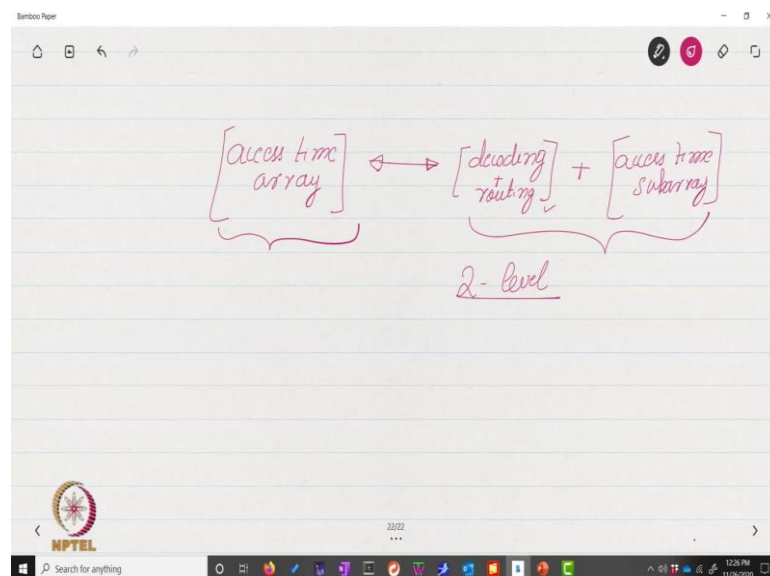 Bamboo Paper
[access time array] ↔ [decoding + routing] + [access time subarray]
2-level
22/22
NPTEL
Search for anything
12:26 PM
11/26/2020